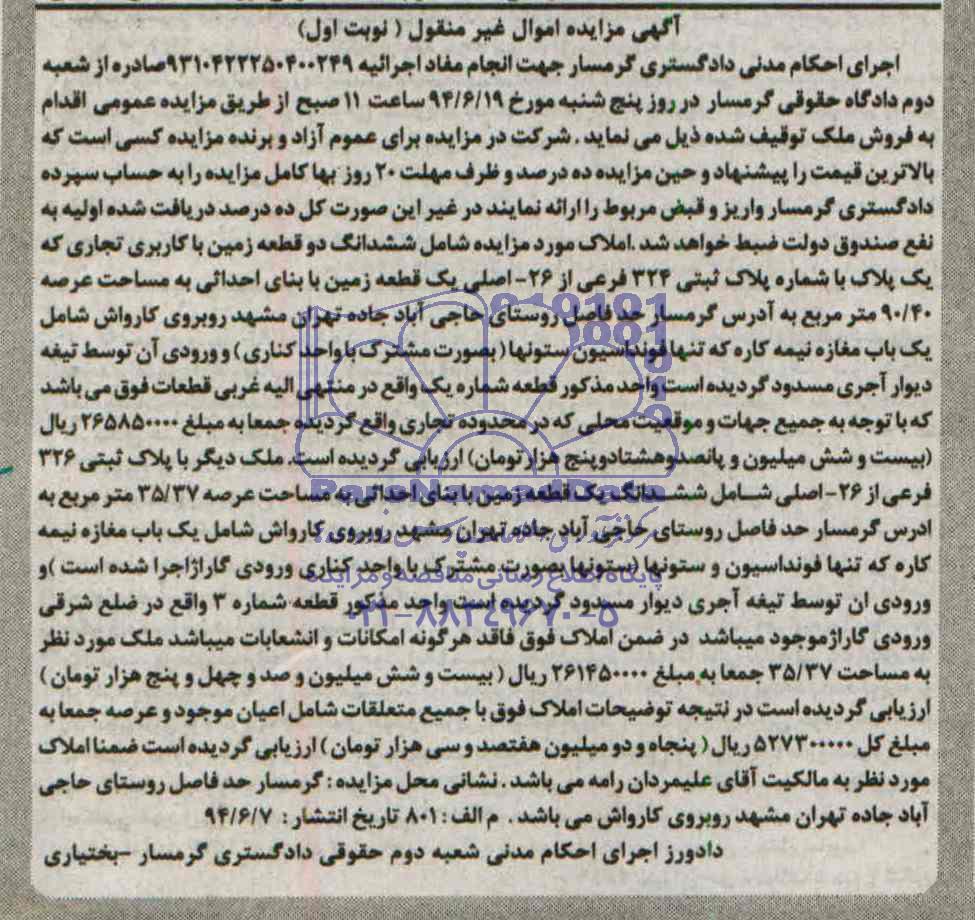 آگهی مزایده اموال غیر منقول ( نوبت اول)
اجرای احکام مدنی دادگستری گرمسار جهت انجام مفاد اجرائیه ۹۳۱۰۴۲۲۲۵۰۴۰۰۲۴۹صادره از شعبه
دوم دادگاه حقوقی گرمسار در روز پنج شنبه مورخ ۹۴/۶/۱۹ ساعت ۱۱ صبح از طریق مزایده عمومی اقدام
به فروش ملک توقیف شده ذیل می نماید . شرکت در مزایده برای عموم آزاد و برنده مزایده کسی است که
بالاترین قیمت را پیشنهاد و حین مزایده ده درصد و ظرف مهلت ۲۰ روز بها کامل مزایده را به حساب سپرده
دادگستری گرمسار واریز و قبض مربوط را ارائه نمایند در غیر این صورت کل ده درصد دریافت شده اولیه به
نفع صندوق دولت ضبط خواهد شد .املاک مورد مزایده شامل ششدانگ دو قطعه زمین با کاربری تجاری که
یک پلاک با شماره پلاک ثبتی ۳۲۴ فرعی از ۲۶- اصلی یک قطعه زمین با بنای احداثی به مساحت عرصه
۹۰/۴۰ متر مربع به آدرس گرمسار حد فاصل روستای حاجی آباد جاده تهران مشهد روبروی کارواش شامل
یک باب مغازه نیمه کاره که تنها فونداسیون ستونها ( بصورت مشترک با واحد کناری ) و ورودی آن توسط تیغه
دیوار آجری مسدود گردیده است واحد مذکور قطعه شماره یک واقع در منتهی الیه غربی قطعات فوق می باشد
که با توجه به جمیع جهات و موقعیت محلی که در محدوده تجاری واقع گردیده جمعا به مبلغ ۲۶۵۸۵۰۰۰۰ ریال
(بیست و شش میلیون و پانصدوهشتادوپنج هزارتومان) ارزیابی گردیده است. ملک دیگر با پلاک ثبتی ۳۲۶
فرعی از ۲۶- اصلی شامل ششدانگ یک قطعه زمین با بنای احداثی به مساحت عرصه ۳۵/۳۷ متر مربع به
ادرس گرمسار حد فاصل روستای حاجی آباد جاده تهران مشهد روبروی کارواش شامل یک باب مغازه نیمه
کاره که تنها فونداسیون و ستونها (ستونها بصورت مشترک با واحد کناری ورودی گاراژاجرا شده است )و
ورودی ان توسط تیغه آجری دیوار مسدود گردیده است واحد مذکور قطعه شماره ۳ واقع در ضلع شرقی
ورودی گاراژموجود میباشد در ضمن املاک فوق فاقد هرگونه امکانات و انشعابات میباشد ملک مورد نظر
به مساحت ۳۵/۳۷ جمعا به مبلغ ۲۶۱۴۵۰۰۰۰ ریال ( بیست و شش میلیون و صد و چهل و پنج هزار تومان )
ارزیابی گردیده است در نتیجه توضیحات املاک فوق با جمیع متعلقات شامل اعیان موجود و عرصه جمعا به
مبلغ کل ۵۲۷۳۰۰۰۰۰ ریال ( پنجاه و دو میلیون هفتصد و سی هزار تومان ) ارزیابی گردیده است ضمنا املاک
مورد نظر به مالکیت آقای علیمردان رامه می باشد . نشانی محل مزایده : گرمسار حد فاصل روستای حاجی
آباد جاده تهران مشهد روبروی کارواش می باشد . م الف : ۸۰۱ تاریخ انتشار : ۹۴/۶/۷
دادورز اجرای احکام مدنی شعبه دوم حقوقی دادگستری گرمسار -بختیاری
ParsNamadData
پایگاه اطلاع رسانی مناقصه و مزایده
۰۲۱-۸۸۳۴۹۶۷۰-۵